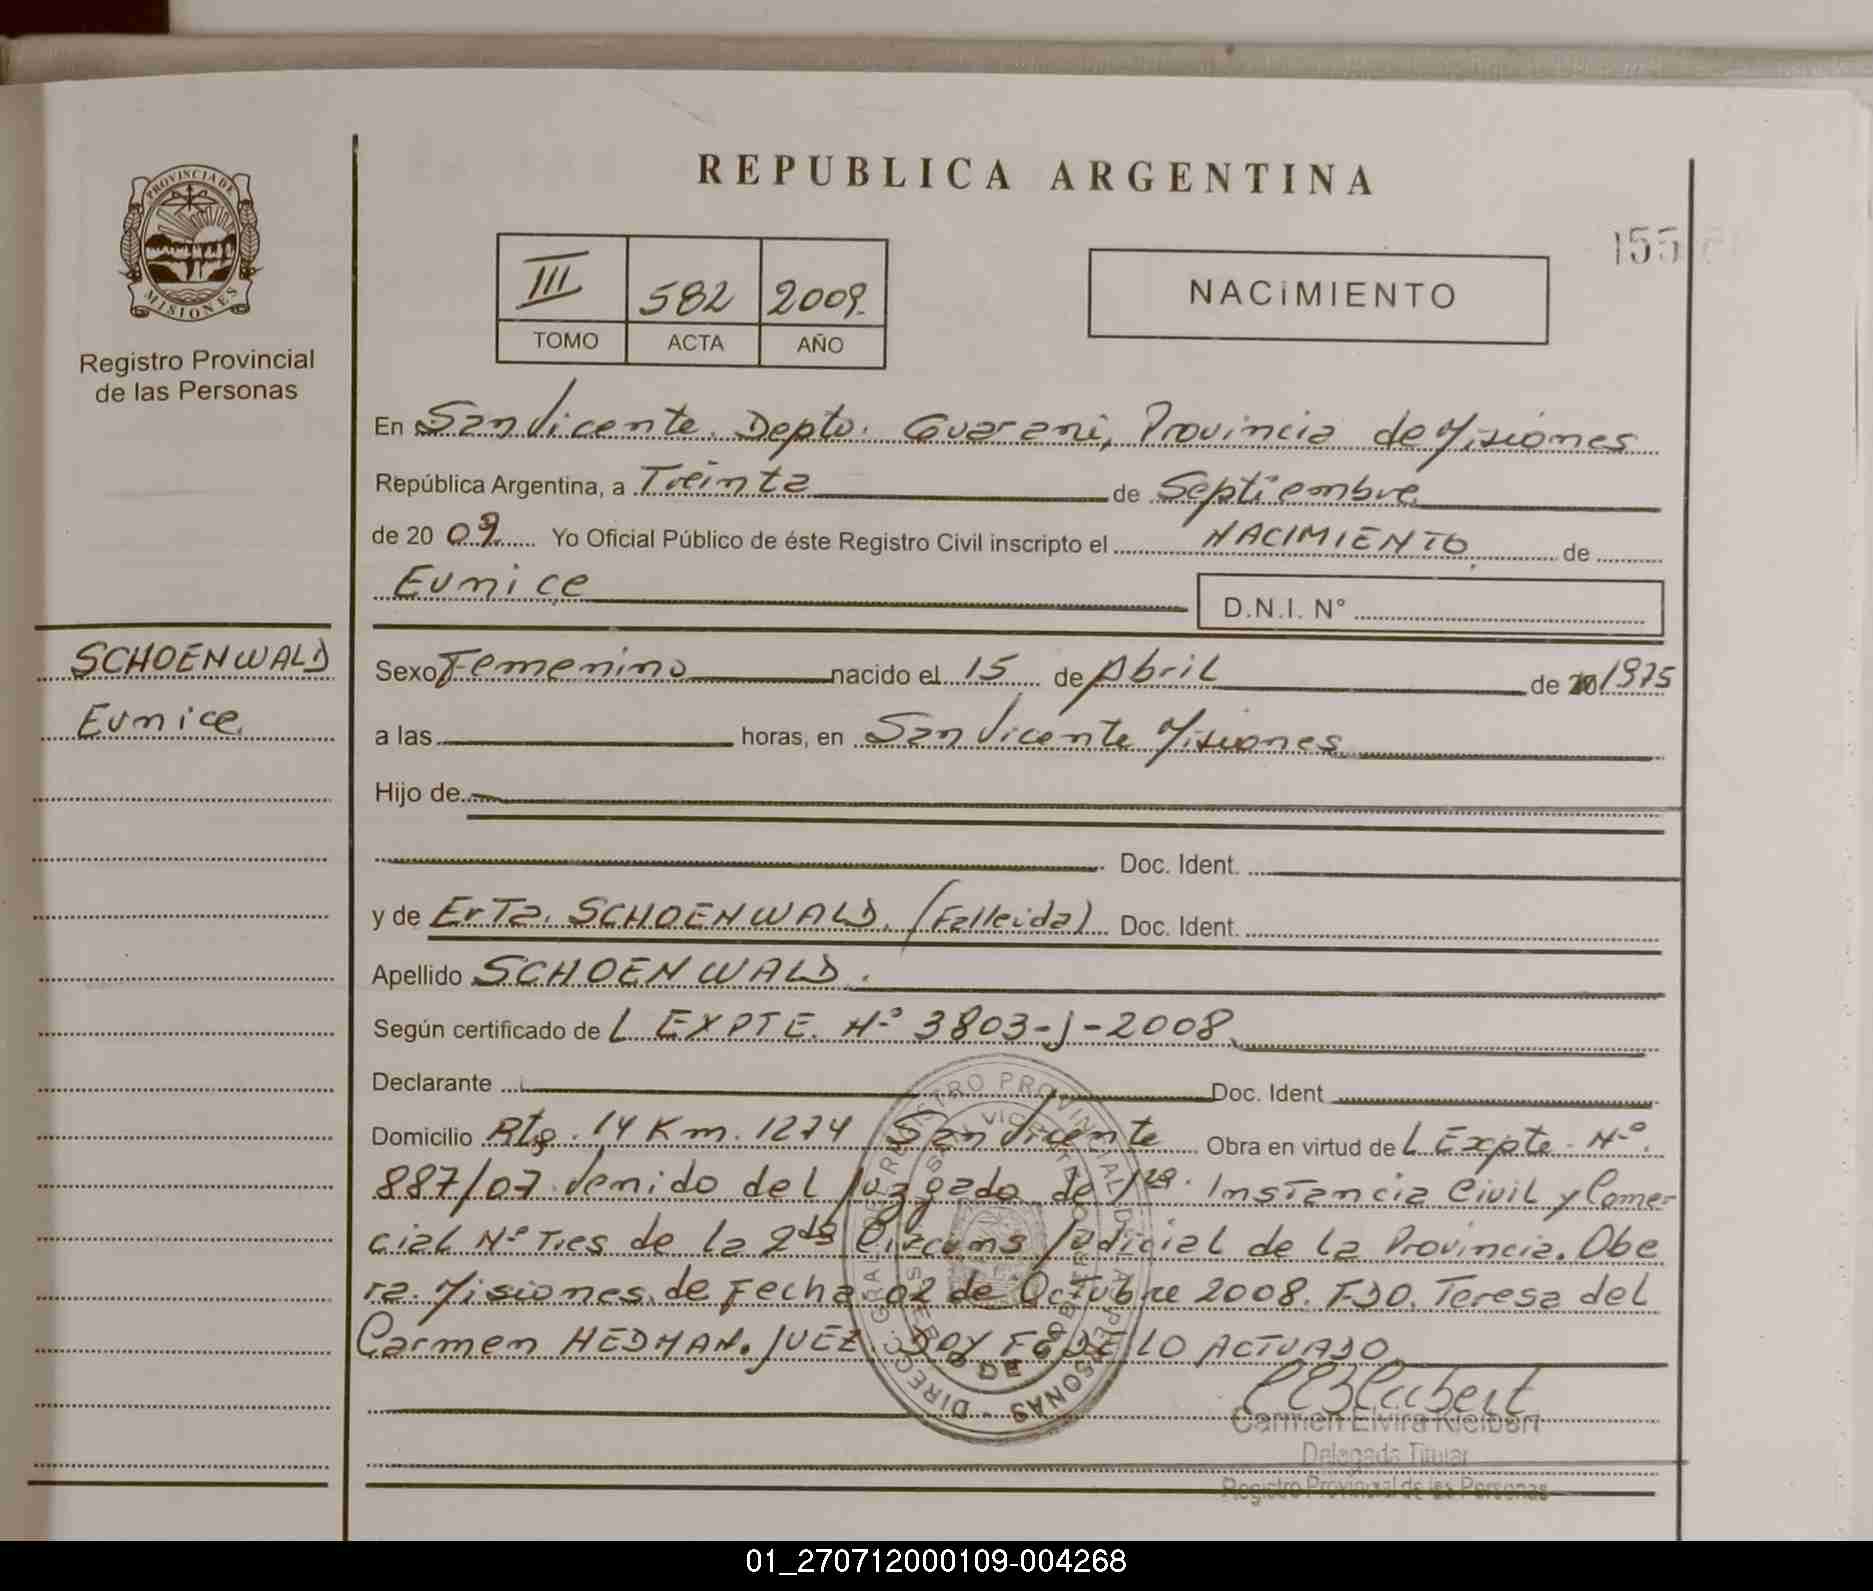 REPUBLICA ARGENTINA
PROVINCIA DE
MISIONES
Registro Provincial
de las Personas
III 582 2009.
TOMO ACTA AÑO
NACiMIENTO
155
En San Vicente. Depto. Guarani, Provincia de Misiones
República Argentina, a Treinta de Septiembre
de 20 09 Yo Oficial Público de éste Registro Civil inscripto el NACIMIENTO de
Eunice D.N.I. N°
SCHOENWALD
Eunice
Sexo Femenino nacido el 15 de Abril de 20 1975
a las horas, en San Vicente Misiones
Hijo de
Doc. Ident.
y de Erta. SCHOENWALD. (Falleida) Doc. Ident.
Apellido SCHOENWALD.
Según certificado de L EXPTE. Nº 3803-J-2008
Declarante Doc. Ident
Domicilio Rta. 14 Km. 1274 San Vicente Obra en virtud de L Expte. Nº.
887/07 Venido del Juzgado de 1ra. Instancia Civil y Comer
cial Nº Tres de la 2da Circuns Judicial de la Provincia. Obe
ra. Misiones. de Fecha 02 de Octubre 2008. FDO. Teresa del
Carmen HEDMAN. JUEZ. DOY FE DE LO ACTUADO
Carmen Elvira Kleibert
Delegada Titular
Registro Provincial de las Personas
01_270712000109-004268